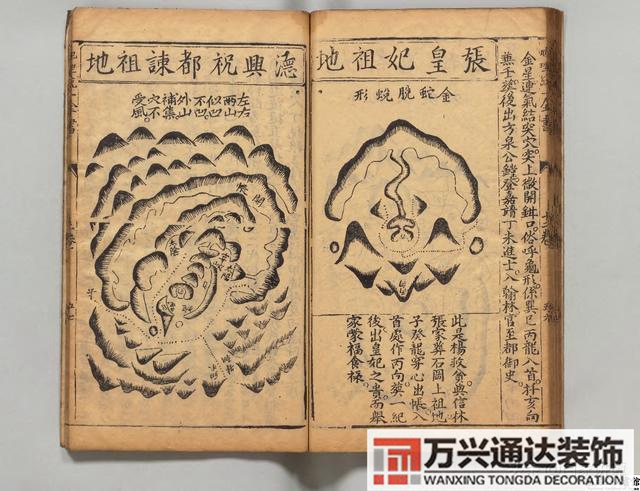 金星連氣結突穴突上微開鉗口俗呼龜形係巽巳丙龍入首扦亥向
兼壬塋後出方泉公鏜登嘉靖丁未進士入翰林官至都御史
張皇妃祖地
金蛇脫蛻形
此是楊救貧與信林
張家葬石岡上祖地
子癸龍穿心出帳入
首處作丙向葬一紀
後出皇妃之貴而舉
家蒙福食祿
德興祝都諫祖地
左右
兩山
似凹
不凹
外山
補集
穴不
受風
万兴通达装饰
WANXING TONGDA DECORATION